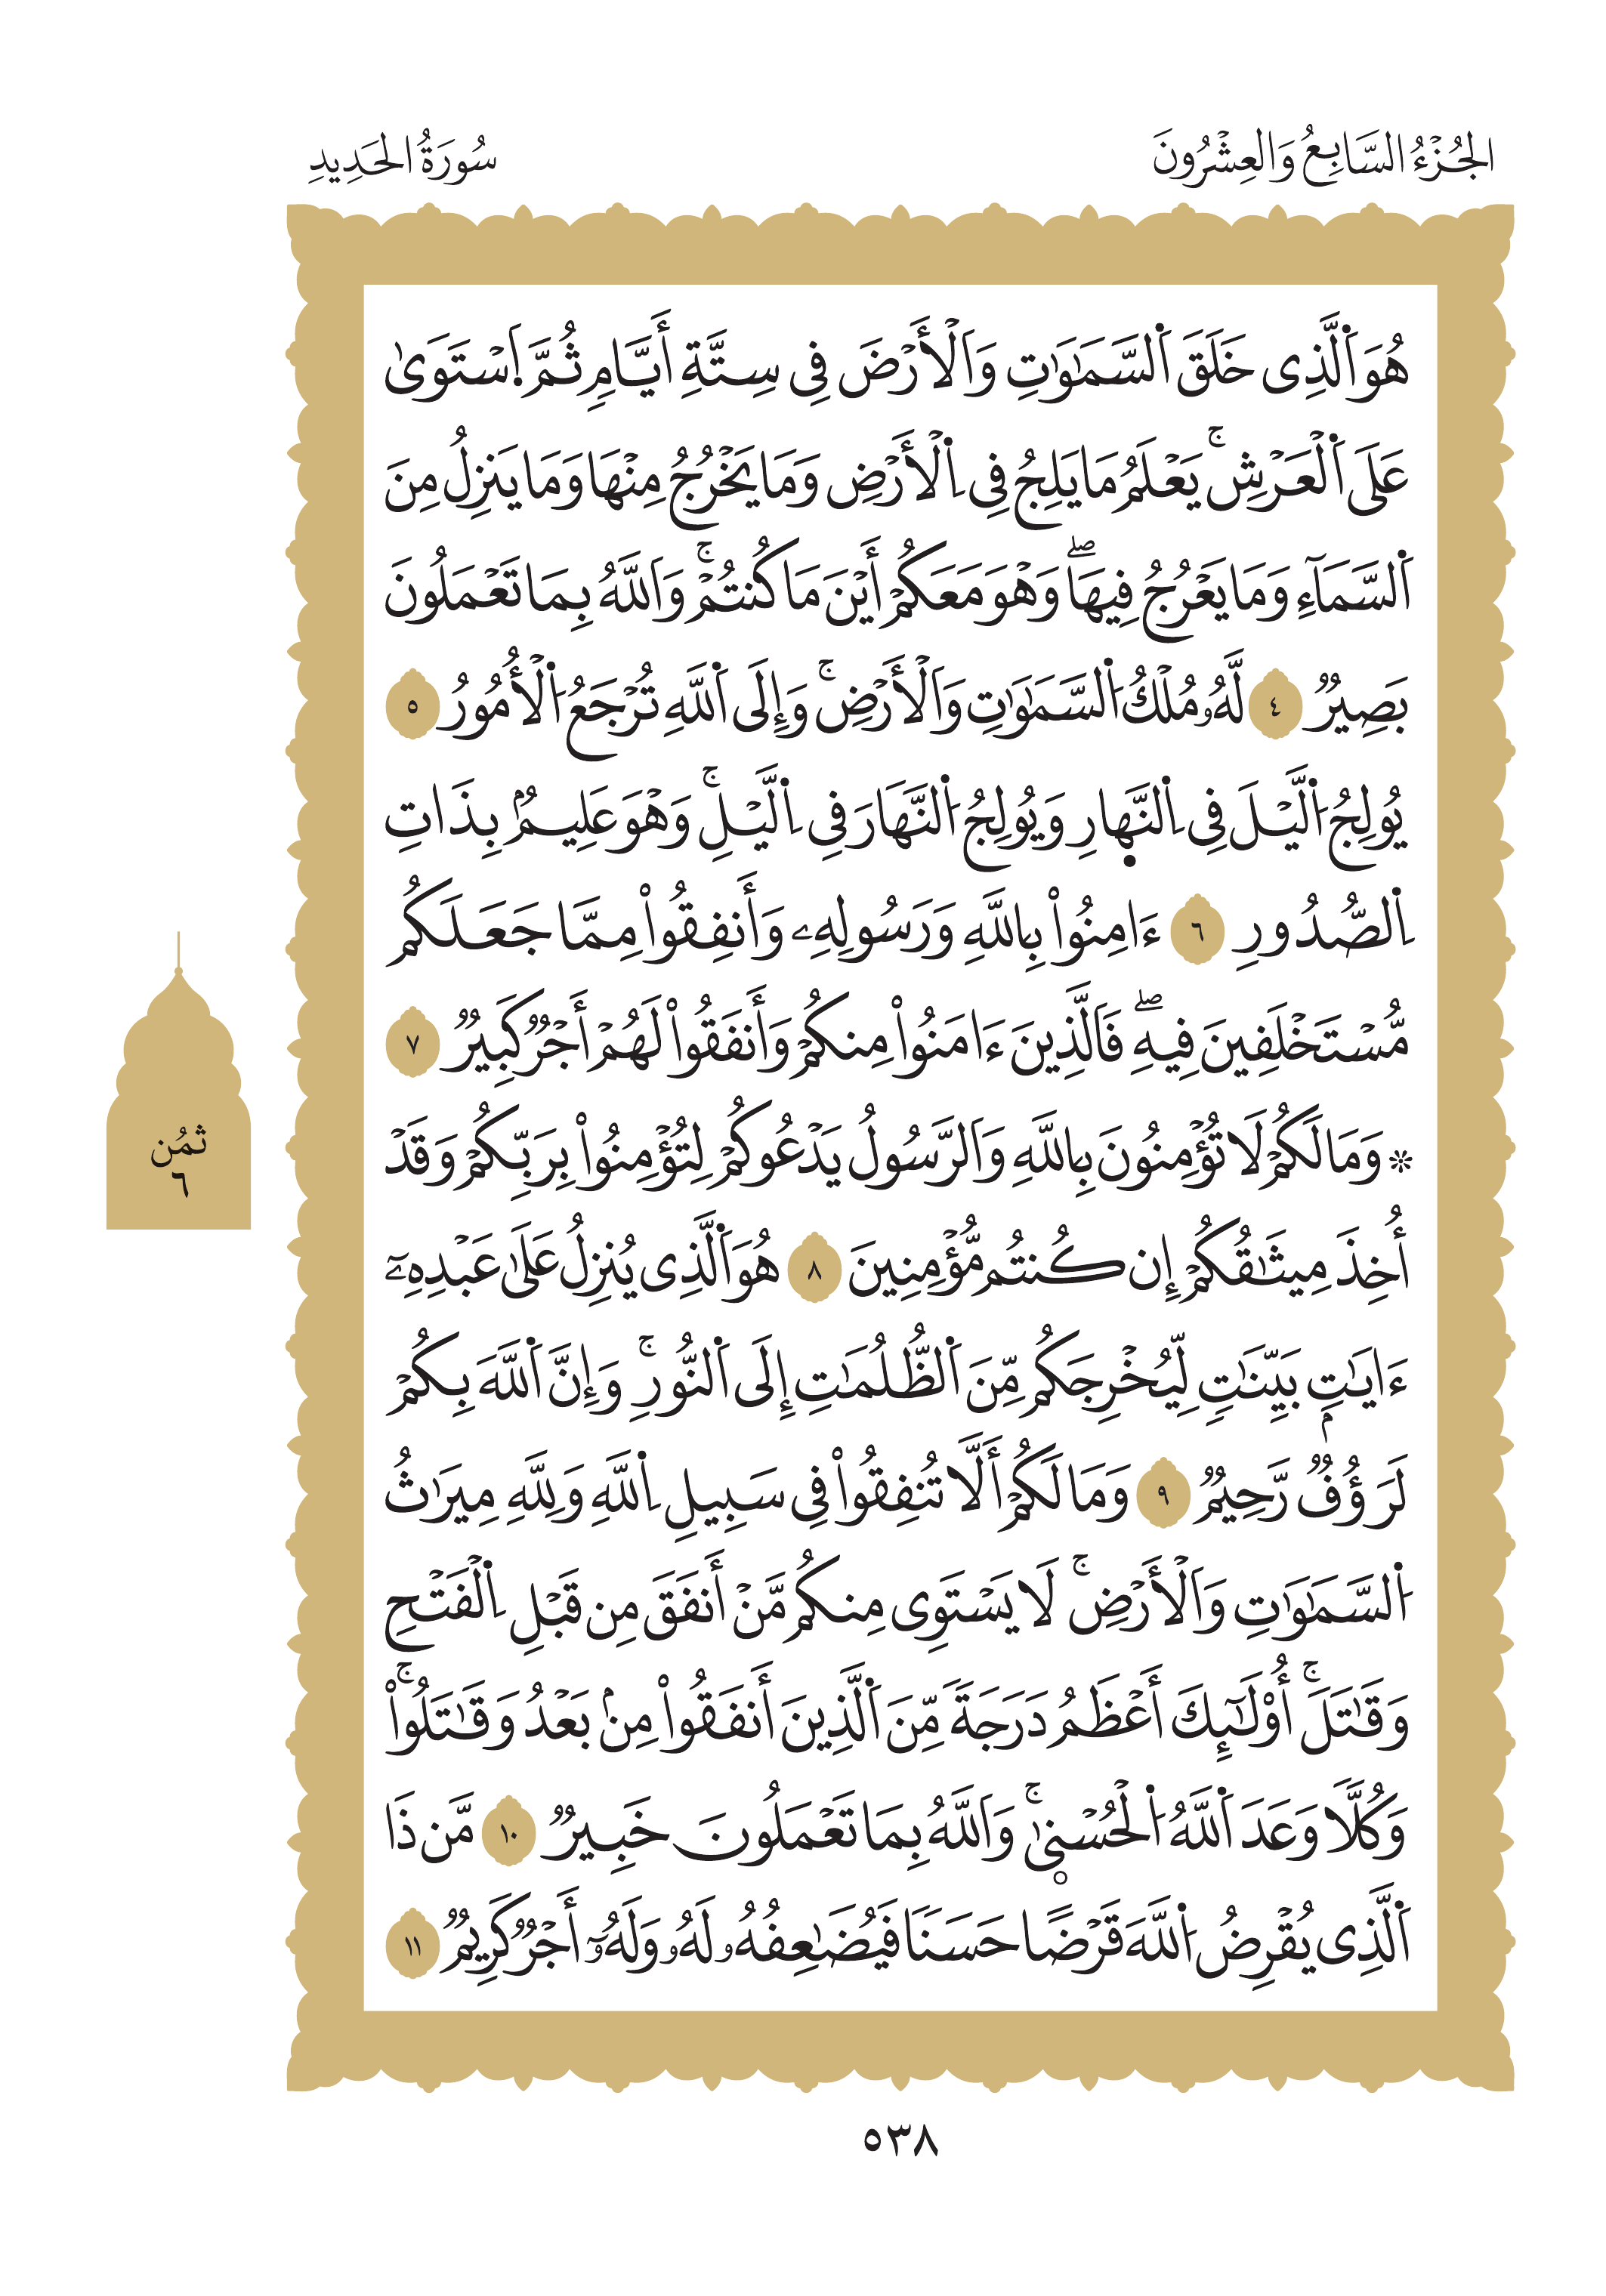 الجُزْءُ السَّابِعُ وَالعِشْرُونَ
سُورَةُ الحَدِيدِ
هُوَ اَ۬لَّذِى خَلَقَ اَ۬لسَّمَٰوَٰتِ وَالَارْضَ فِى سِتَّةِ أَيَّامٖ ثُمَّ اَ۪سْتَوَىٰ
عَلَى اَ۬لْعَرْشِۚ يَعْلَمُ مَا يَلِجُ فِى اِ۬لْأَرْضِ وَمَا يَخْرُجُ مِنْهَا وَمَا يَنزِلُ مِنَ
اَ۬لسَّمَآءِ وَمَا يَعْرُجُ فِيهَاۖ وَهْوَ مَعَكُمْ أَيْنَ مَا كُنتُمْۚ وَاَ۬للَّهُ بِمَا تَعْمَلُونَ
بَصِيرٞ ٤ لَّهُۥ مُلْكُ اُ۬لسَّمَٰوَٰتِ وَاَ۬لْأَرْضِۚ وَإِلَى اَ۬للَّهِ تُرْجَعُ اُ۬لْأُمُورُ ٥
يُولِجُ اُ۬لَّيْلَ فِى اِ۬لنَّه۪ارِ وَيُولِجُ اُ۬لنَّهَارَ فِى اِ۬لَّيْلِۚ وَهْوَ عَلِيمُۢ بِذَاتِ
اِ۬لصُّدُورِ ٦ ءَامِنُواْ بِاللَّهِ وَرَسُولِهِۦ وَأَنفِقُواْ مِمَّا جَعَلَكُم
مُّسْتَخْلَفِينَ فِيهِۖ فَالَّذِينَ ءَامَنُواْ مِنكُمْ وَأَنفَقُواْ لَهُمْ أَجْرٞ كَبِيرٞ ٧
۞ وَمَا لَكُمْ لَا تُؤْمِنُونَ بِاللَّهِ وَاَ۬لرَّسُولُ يَدْعُوكُمْ لِتُؤْمِنُواْ بِرَبِّكُمْ وَقَدْ
أُخِذَ مِيثَٰقُكُمْ إِن كُنتُم مُّؤْمِنِينَ ٨ هُوَ اَ۬لَّذِى يُنزِلُ عَلَىٰ عَبْدِهِۦٓ
ءَايَٰتِۭ بَيِّنَٰتٖ لِّيُخْرِجَكُم مِّنَ اَ۬لظُّلُمَٰتِ إِلَى اَ۬لنُّورِۚ وَإِنَّ اَ۬للَّهَ بِكُمْ
لَرَؤُفٞ رَّحِيمٞ ٩ وَمَا لَكُمْ أَلَّا تُنفِقُواْ فِى سَبِيلِ اِ۬للَّهِ وَلِلَّهِ مِيرَٰثُ
اُ۬لسَّمَٰوَٰتِ وَاَ۬لْأَرْضِۚ لَا يَسْتَوِى مِنكُم مَّنْ أَنفَقَ مِن قَبْلِ اِ۬لْفَتْحِ
وَقَٰتَلَۚ أُوْلَٰٓئِكَ أَعْظَمُ دَرَجَةٗ مِّنَ اَ۬لَّذِينَ أَنفَقُواْ مِنۢ بَعْدُ وَقَٰتَلُواْۚ
وَكُلّٗا وَعَدَ اَ۬للَّهُ اُ۬لْحُسْن۪ىٰۚ وَاَ۬للَّهُ بِمَا تَعْمَلُونَ خَبِيرٞ ١٠ مَّن ذَا
اَ۬لَّذِى يُقْرِضُ اُ۬للَّهَ قَرْضًا حَسَنٗا فَيُضَٰعِفُهُۥ لَهُۥ وَلَهُۥٓ أَجْرٞ كَرِيمٞ ١١
ثمُن
٦
٥٣٨